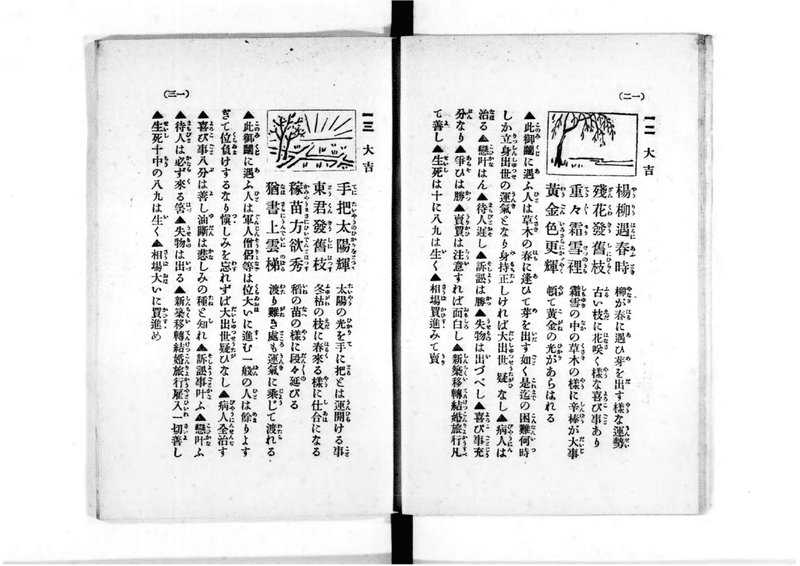 (一二)
一二 大吉
楊柳遇春時
殘花發舊枝
重々霜雪裡
黃金色更輝
柳が春に遇ひ芽を出す樣な運勢
古い枝に花咲く樣な喜び事あり
霜雪の中の草木の樣に辛棒が大事
頓て黃金の光があらはれる
▲此御鬮に遇ふ人は草木の春に逢ひて芽を出す如く是迄の困難何時
しか立身出世の運氣となり身持正しければ大出世疑なし▲病人は
治る▲戀叶はん▲待人遲し▲訴訟は勝▲失物は出づべし▲喜び事充
分なり▲爭ひは勝▲賣買は注意すれば面白し▲新築移轉結婚旅行凡
て善し▲生死は十に八九は生く▲相場買進みて賣
(一三)
一三 大吉
手把太陽輝
東君發舊枝
稼苗方欲秀
猶書上雲梯
太陽の光を手に把とは運開ける事
冬枯の枝に春來る樣に仕合になる
稻の苗の樣に段々延びる
渡り難き處も運氣に乘じて渡れる
▲此御鬮に遇ふ人は軍人僧侶等は位大いに進む一般の人は餘りよす
ぎて位負けするなり愼しみを忘れずば大出世疑ひなし▲病人全治す
▲喜び事八分は善し油斷は悲しみの種と知れ▲訴訟事叶ふ▲戀叶ふ
▲待人は必ず來る筈▲失物は出る▲新築移轉結婚旅行雇入一切善し
▲生死十中の八九は生く▲相場大いに買進め